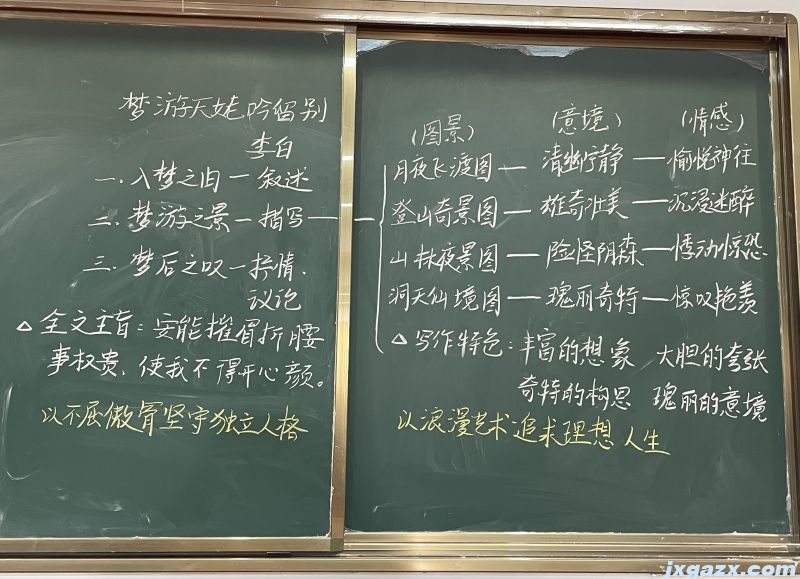 梦游天姥吟留别
李白
一.入梦之由—叙述
二.梦游之景—描写—
三.梦后之叹—抒情.
议论
△全文主旨:安能摧眉折腰
事权贵,使我不得开心颜。
以不屈傲骨坚守独立人格
(图景) (意境) (情感)
月夜飞渡图—清幽宁静—愉悦神往
登山奇景图—雄奇壮美—沉浸迷醉
山林夜景图—险怪阴森—悸动惊恐
洞天仙境图—瑰丽奇特—惊叹艳羡
△写作特色:丰富的想象 大胆的夸张
奇特的构思 瑰丽的意境
以浪漫艺术追求理想人生
jxgazx.com